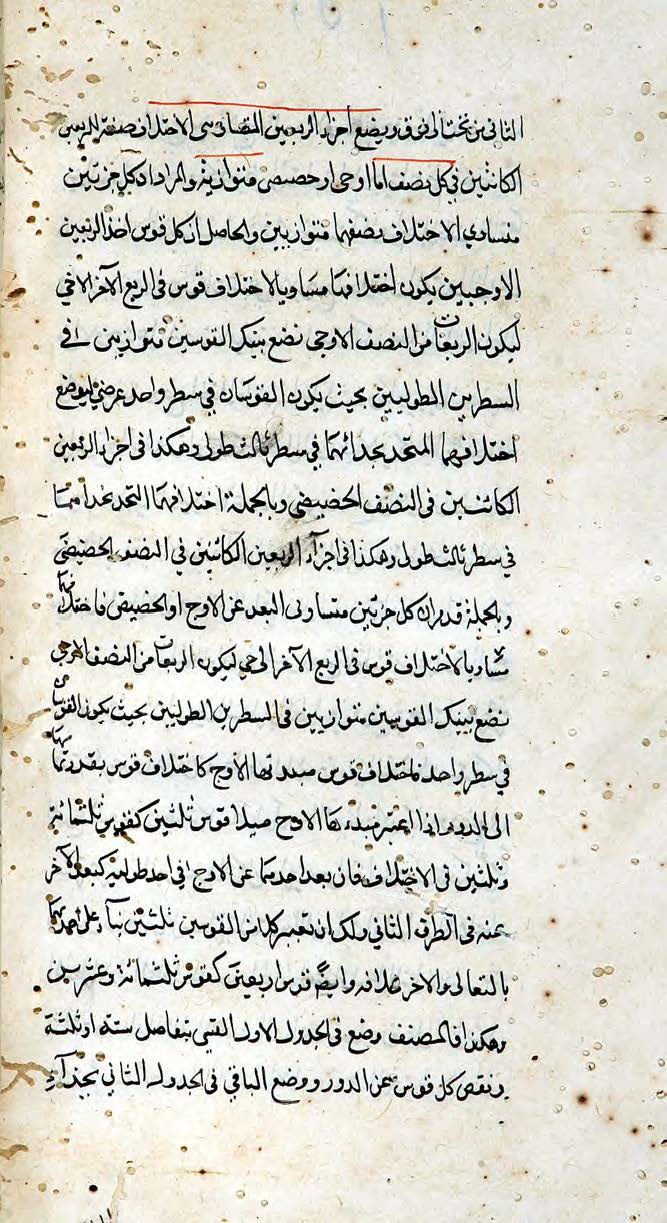 الثانى من تحت الى فوق ويضع اجزاء الربعين المتساويى الاختلاف صفة للربعين
الكائنين فى كل نصف اما اوجى او حضيضى متوازية والمراد ان كل جزئين
متساوي الاختلاف يضعهما متوازيين والحاصل ان كل قوس احد الربعين
الاوجيين يكون اختلافها مساويا لاختلاف قوس فى الربع الآخر الاوجي
ليكون الربعان من النصف الاوجى نضع بينك القوسين متوازيين فى
السطرين الطوليين بحيث يكون القوسان في سطر واحد عرضي ليوضع
اختلافهما المتحد بحذائهما في سطر ثالث طولى وهكذا فى اجزاء الربعين
الكائنين فى النصف الحضيضى وبالجملة اختلافهما المتحد بحذائهما
في سطر ثالث طولى وهكذا فى اجزآء الربعين الكائنين في النصف الحضيضى
وبالجملة قدمر ان كل جزئين متساويى البعد عن الاوج او الحضيض فاختلافهما
متساو بالاختلاف قوس فى الربع الآخر الاوجى ليكون الربعان من النصف الاوجى
نضع بينك القوسين متوازيين فى السطرين الطوليين بحيث يكون القوسان
في سطر واحد فاختلاف قوس مبدئها الاوج كاختلاف قوس بقدر تمامها
الى الدور اذا اعتبر مبدءها الاوج مثلا قوس ثلثين كقوس ثلثمائة
وثلثين فى الاختلاف فان بعد احدهما عن الاوج فى احد طرفيه كبعد الآخر
عنه فى الطرف الثاني ولك ان تعتبر كلا من القوسين ثلثين بناء على احدهما
بالتوالى والاخر خلافه وايضا قوس اربعين كقوس ثلثمائة وعشرين
وهكذا فالمصنف وضع فى الجدول الاول القسى بتفاضل ستة او ثلثة
ونقص كل قوس عن الدور ووضع الباقي فى الجدول الثاني بحذآء